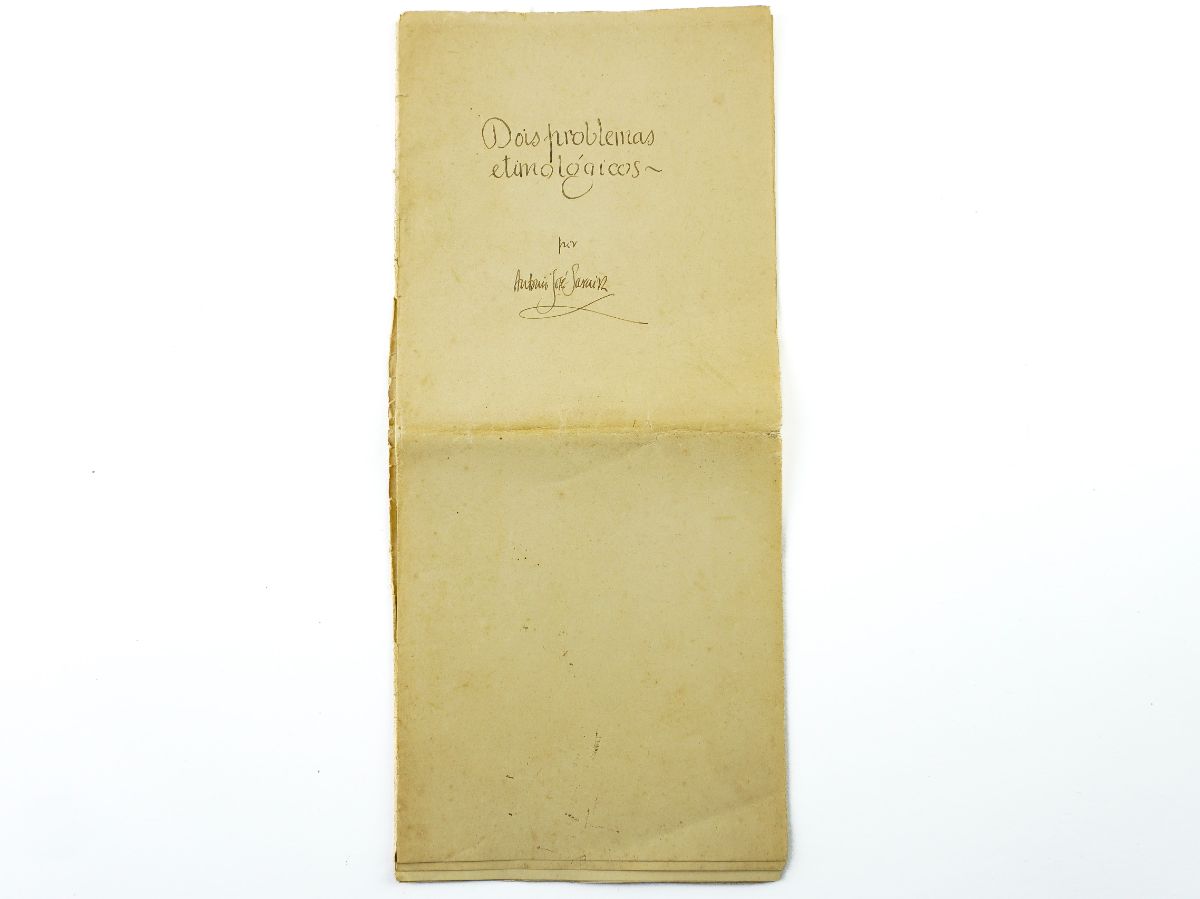 Dois problemas
etimológicos~
por
António José Saraiva